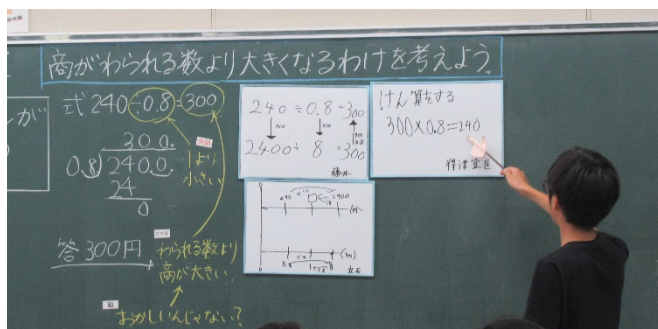 商がわられる数より大きくなるわけを考えよう。
式 240÷0.8=300
300.
0.8)2400
24
0
答 300円
1より
小さい
わられる数より
高が大きい
おかしいんじゃない?
240÷0.8=300
2400÷8=300
藤井
けん算をする
300×0.8=240
240
2400
(m)
0.8
8
立石
が